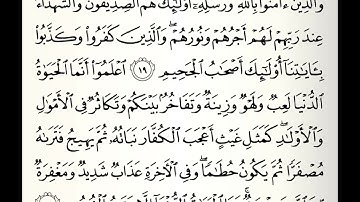 وَالَّذِينَ ءَامَنُوا بِاللَّهِ وَرُسُلِهِ أُولَٰئِكَ هُمُ الصِّدِّيقُونَ وَالشُّهَدَاءُ
عِندَ رَبِّهِمْ لَهُمْ أَجْرُهُمْ وَنُورُهُمْ ۖ وَالَّذِينَ كَفَرُوا وَكَذَّبُوا
بِـَٔايَٰتِنَا أُولَٰئِكَ أَصْحَٰبُ الْجَحِيمِ ١٩ اعْلَمُوا أَنَّمَا الْحَيَوٰةُ
الدُّنْيَا لَعِبٌ وَلَهْوٌ وَزِينَةٌ وَتَفَاخُرٌ بَيْنَكُمْ وَتَكَاثُرٌ فِي الْأَمْوَٰلِ
وَالْأَوْلَٰدِ ۖ كَمَثَلِ غَيْثٍ أَعْجَبَ الْكُفَّارَ نَبَاتُهُ ثُمَّ يَهِيجُ فَتَرَىٰهُ
مُصْفَرًّا ثُمَّ يَكُونُ حُطَٰمًا ۖ وَفِي الْءَاخِرَةِ عَذَابٌ شَدِيدٌ وَمَغْفِرَةٌ